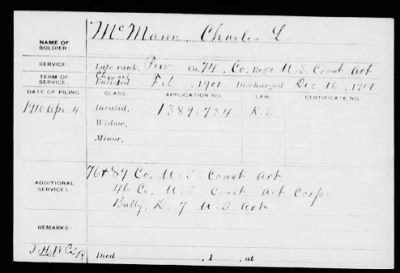 NAME OF SOLDIER: McMann, Charles L
SERVICE: Late rank, Priv Co. 74, Co. Reg't U.S. Coast Art
TERM OF SERVICE: Enlisted Feb , 1901 Discharged Dec 16, 1901
DATE OF FILING. CLASS. APPLICATION NO. LAW. CERTIFICATE NO.
1910 Apr 4 Invalid, 1389.724
Widow,
Minor,
ADDITIONAL SERVICES: 76 + 89 Co. U.S. Coast Art
46 Co. U.S. Coast Art Corps
Batty. D. 7 U.S. Art
REMARKS:
Died , 1 , at